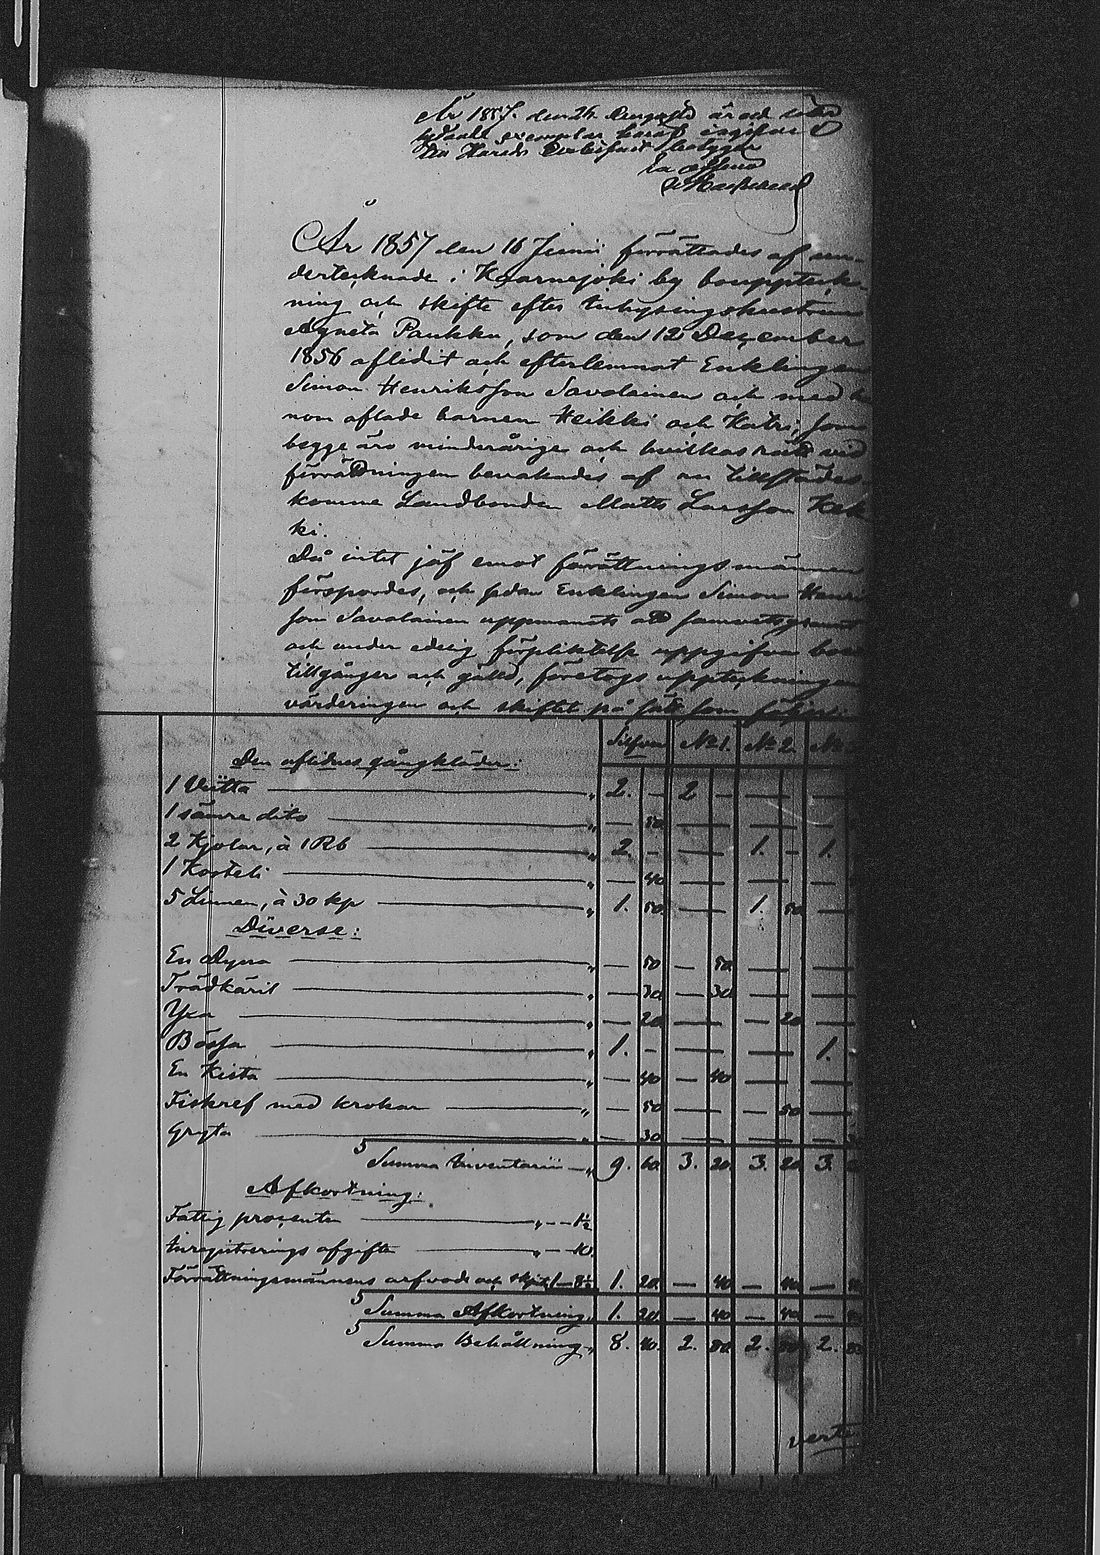 År 1857. den 26 Augusti är ett
exemplar häraf
Härads
År 1857 den 16 Junii förrättades af un-
dertecknade i Kaarnejoki by bouppteck-
ning och skifte efter Inhysingshustrun
Agneta Paukku, som den 12 December
1856 aflidit och efterlemnat Enklingen
Simon Henriksson Savolainen och med ho
nom aflade barnen Heikki och Katri, som
begge äro minderårige och hvilkas rätt vid
förrättningen bevakades af en tillstädes-
komne Landbonden Matts Larsson Kek
ki.
Då intet jäf emot förrättningsmännen
försportes, och sedan Enklingen Simon Henrik
son Savolainen uppmanats att samvetsgrant
och under edelig förpliktelse uppgifva boets
tillgångar och gäld, företogs uppteckningen
värderingen och skiftet på sätt som följer:
Silfver № 1. № 2. №
Den aflidnes gångkläder:
1 Viitta — „ 2. — 2 — — —
1 sämre dito — „ — 50 — — —
2 Kjolar, à 1 Rb — „ 2. — — 1. — 1.
1 Kosteli — „ — 40 — — —
5 Linnen, à 30 kp — „ 1. 50 — 1. 50 —
Diverse:
En Dyna — „ — 50 — 50 — —
Trädkäril — „ — 30 — 30 — —
Yxa — „ — 20 — — 20 —
Bössa — „ 1. — — — 1.
En Kista — „ — 40 — 40 — —
Fiskref med krokar — „ — 50 — — 50 —
Gryta — „ — 30 — — —
S Summa Inventarii — „ 9. 60. 3. 20. 3. 20 3.
Afkortning:
Fattig procenten — „ — 1½
Inregistrerings afgiften — „ — 10.
Förrättningsmännens arfvode och skjuts 1 — 8½ 1. 20. — 40 — 40 —
S Summa Afkortning „ 1. 20. — 40 — 40 —
S Summa Behållning „ 8. 40. 2. 80. 2. 80 2. 80
verte